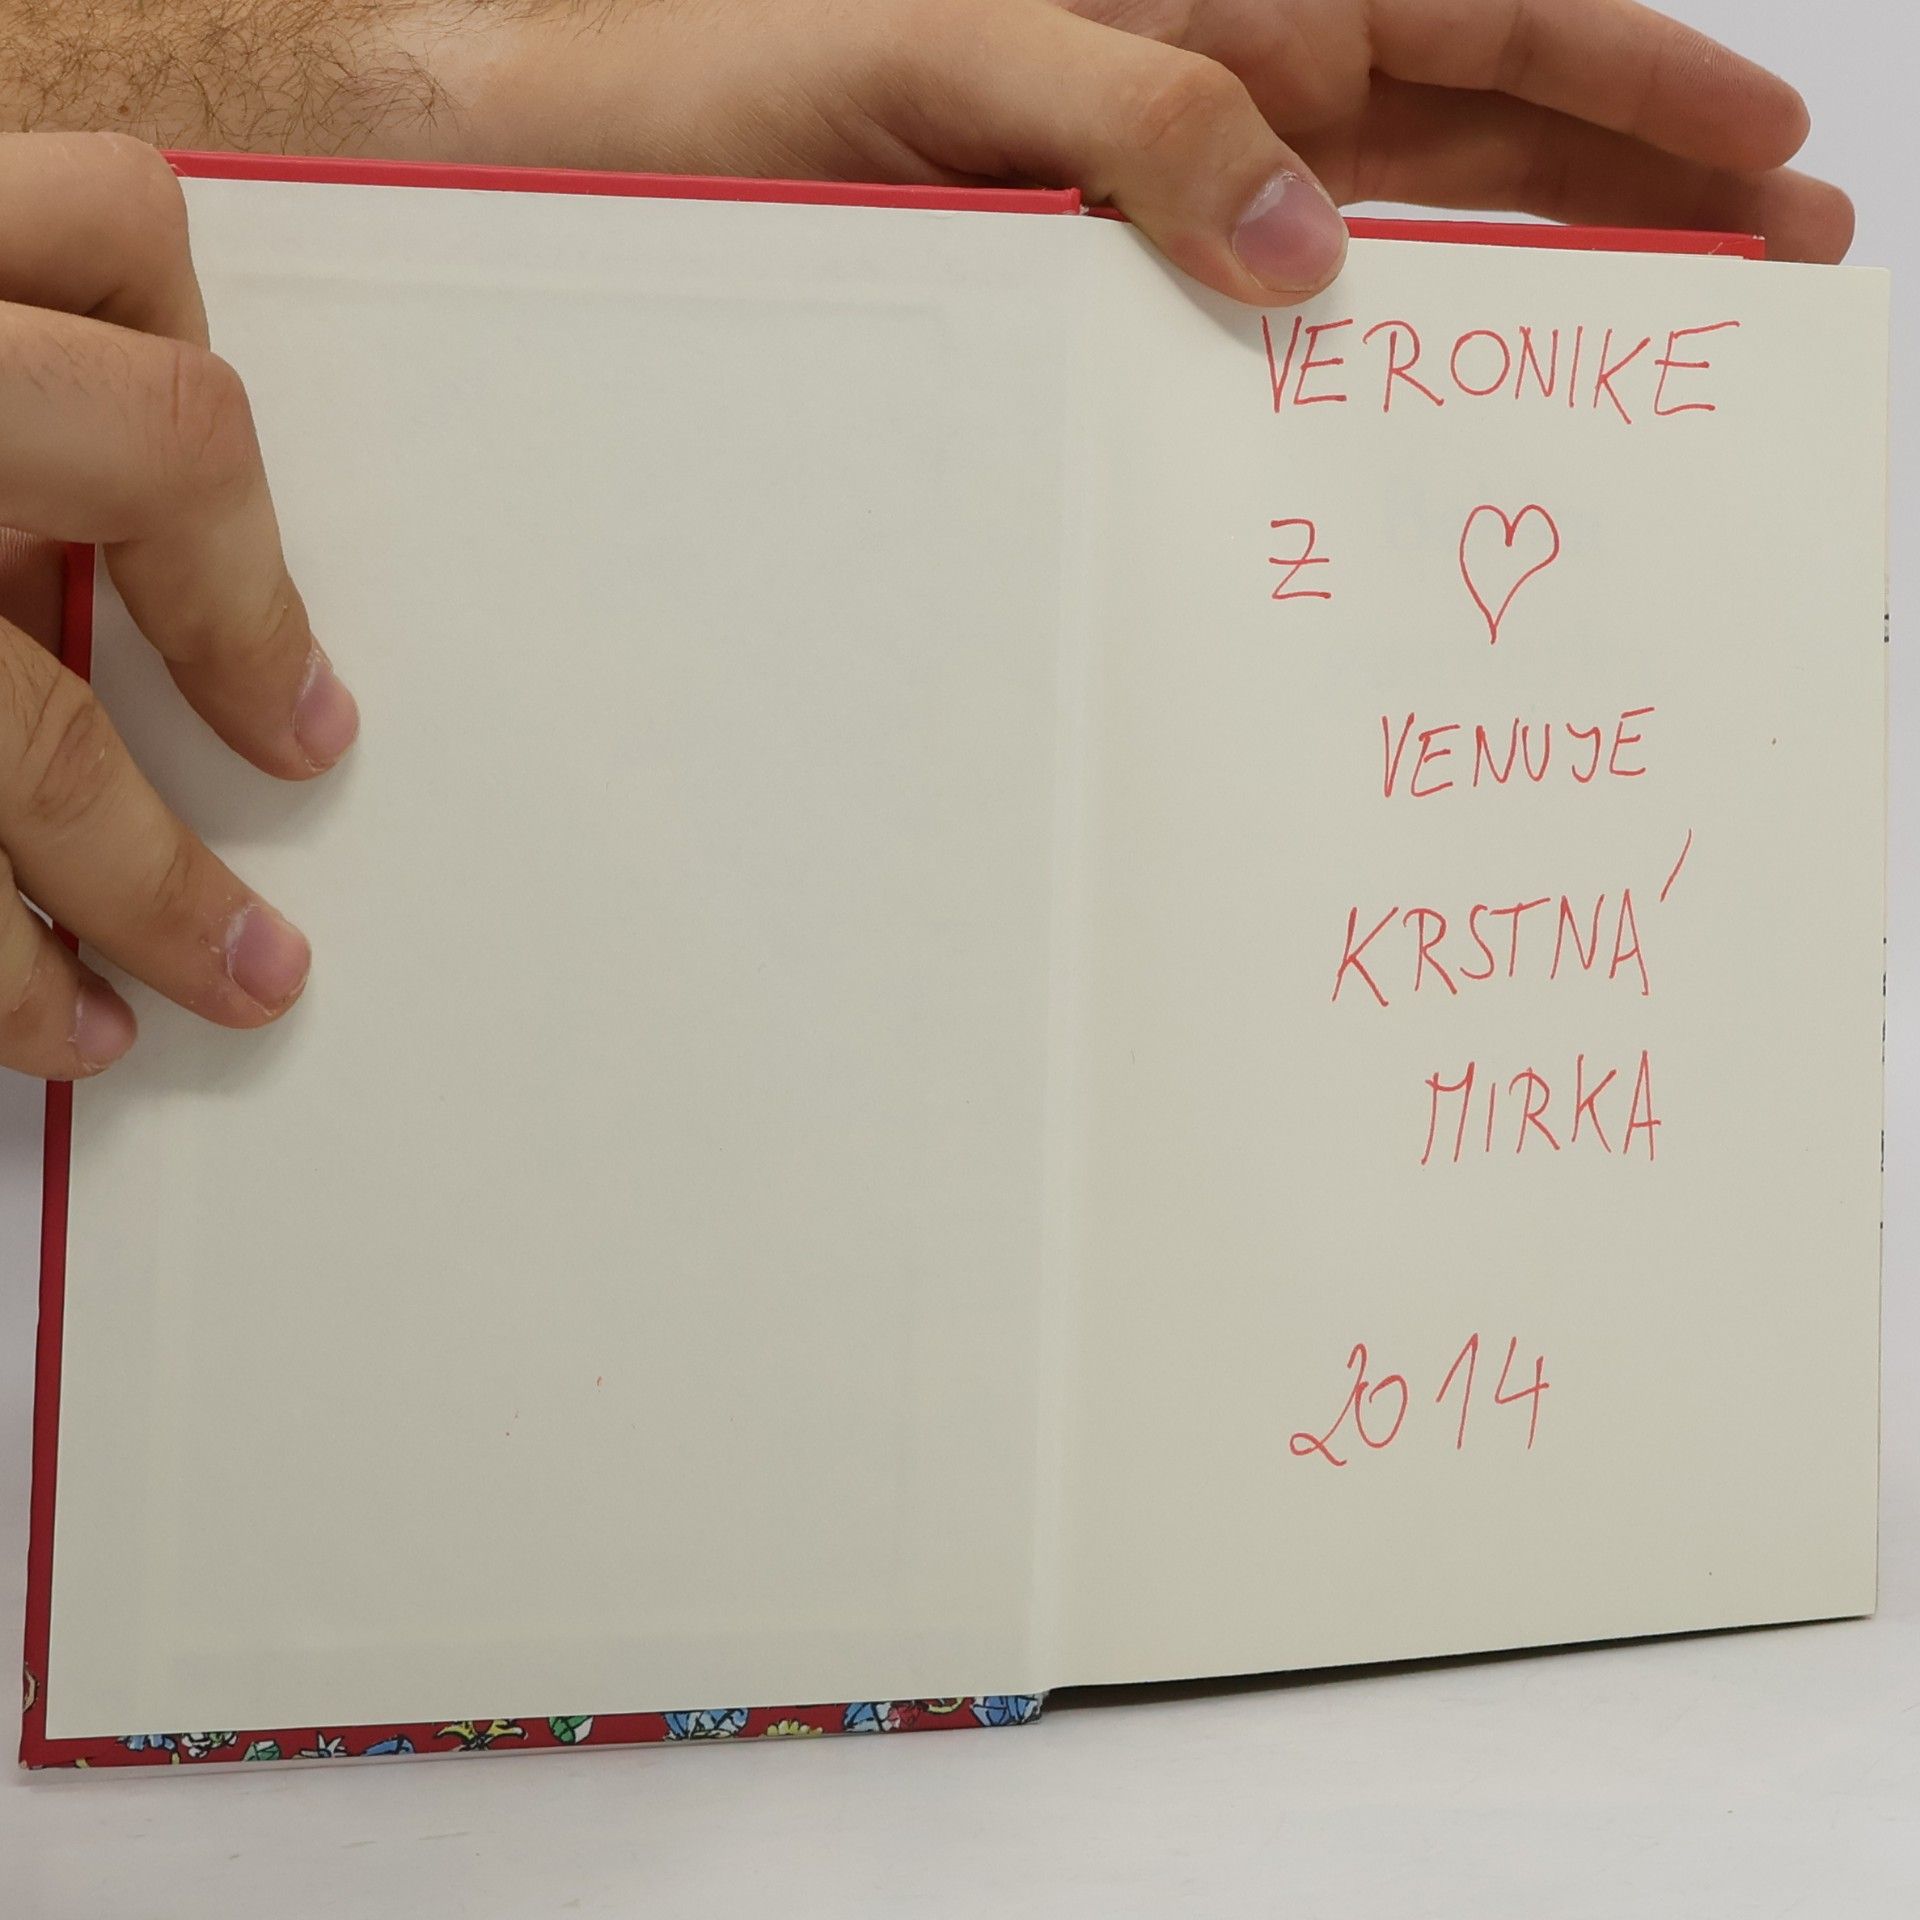 VERONIKE
Z ♡
VENUJE
KRSTNÁ
MIRKA
2014